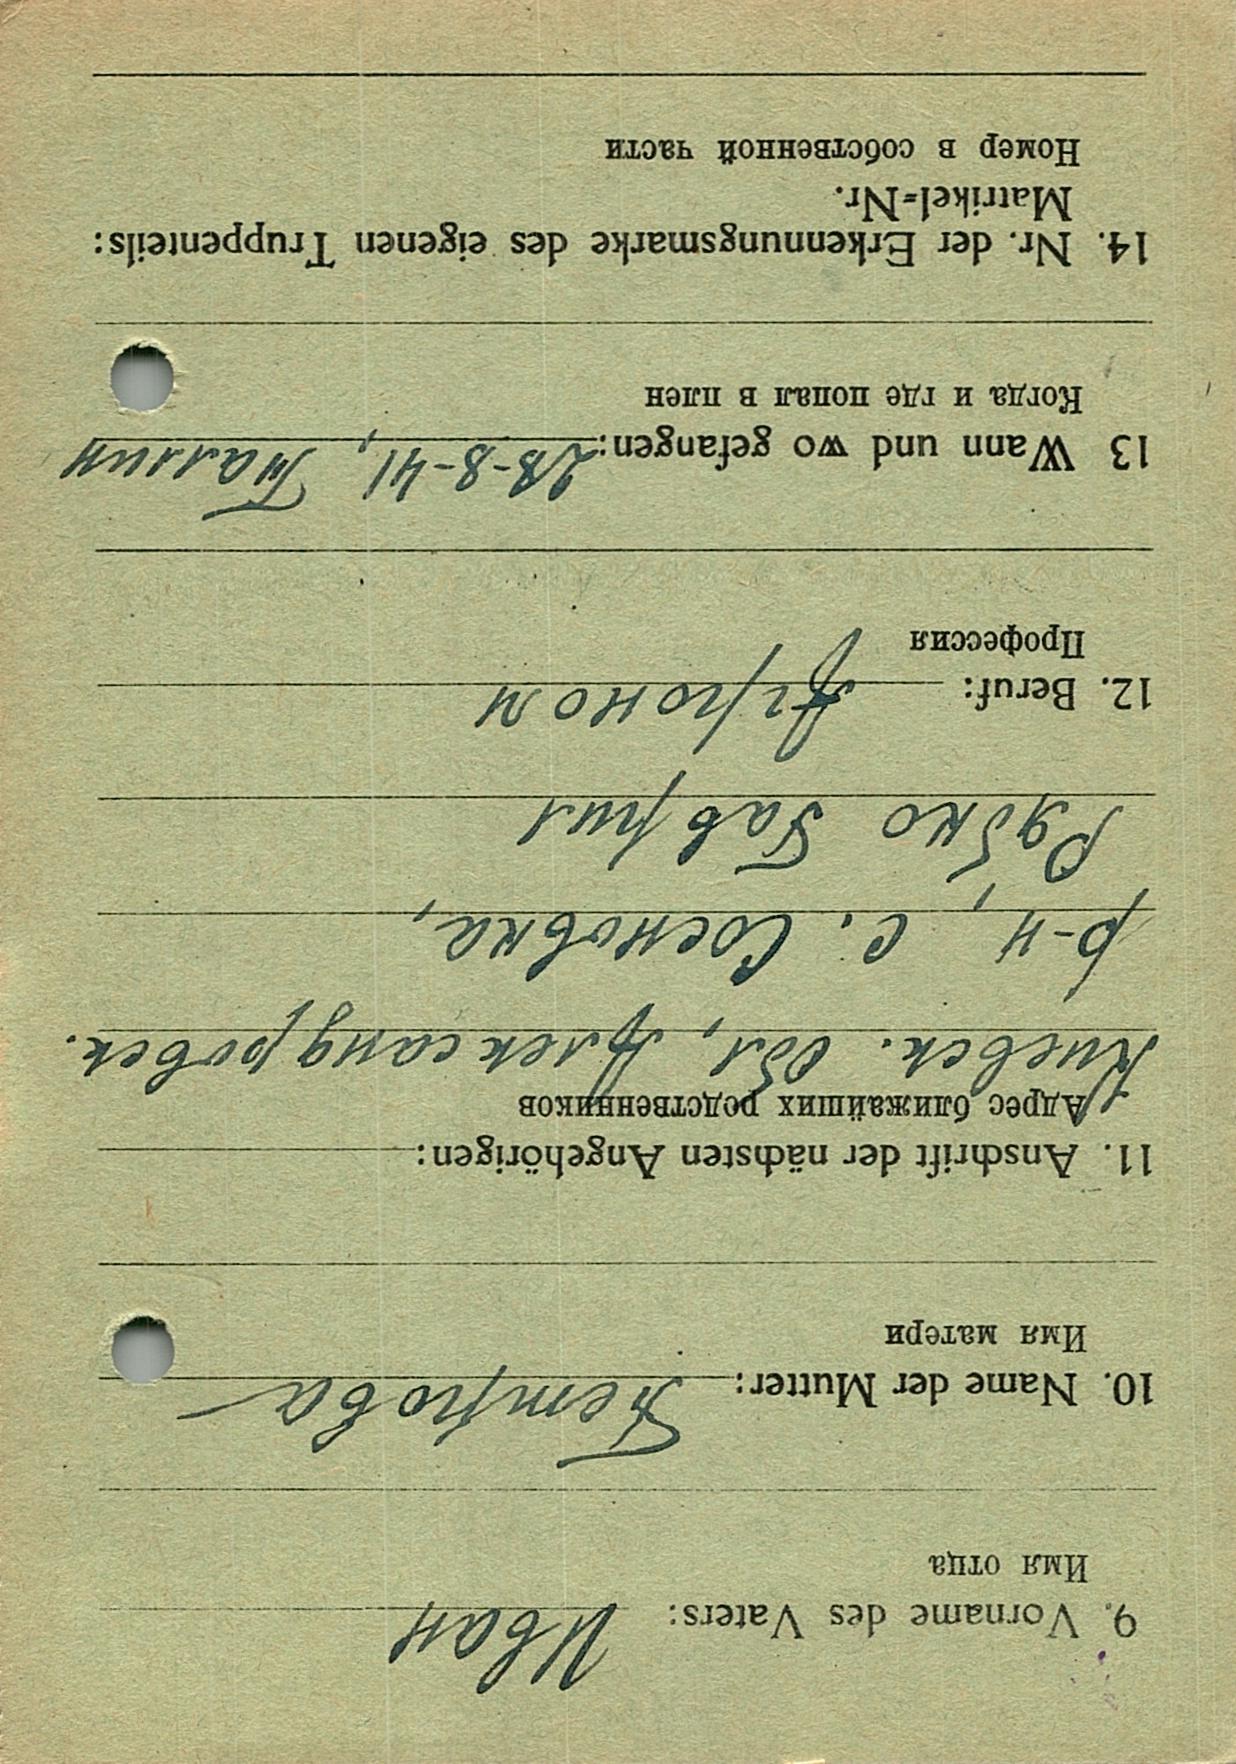 9. Vorname des Vaters: Иван
Имя отца
10. Name der Mutter: Петрова
Имя матери
11. Anschrift der nächsten Angehörigen:
Адрес ближайших родственников
Киевск. обл, Александровск.
р-н, с. Сосновка,
Рябко Гаврил
12. Beruf: Агроном
Профессия
13 Wann und wo gefangen: 28-8-41, Таллин
Когда и где попал в плен
14. Nr. der Erkennungsmarke des eigenen Truppenteils:
Matrikel-Nr.
Номер в собственной части